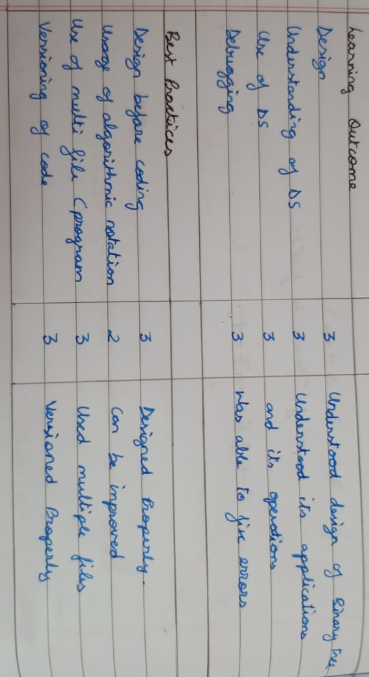 Learning Outcome
Design 3 Understood design of Binary Tree
Understanding of DS 3 Understood its applications
Use of DS 3 and its operations
Debugging 3 Was able to fix errors
Best Practices
Design before coding 3 Designed Properly.
Usage of algorithmic notation 2 Can be improved
Use of multi file C program 3 Used multiple files
Versioning of code 3 Versioned Properly